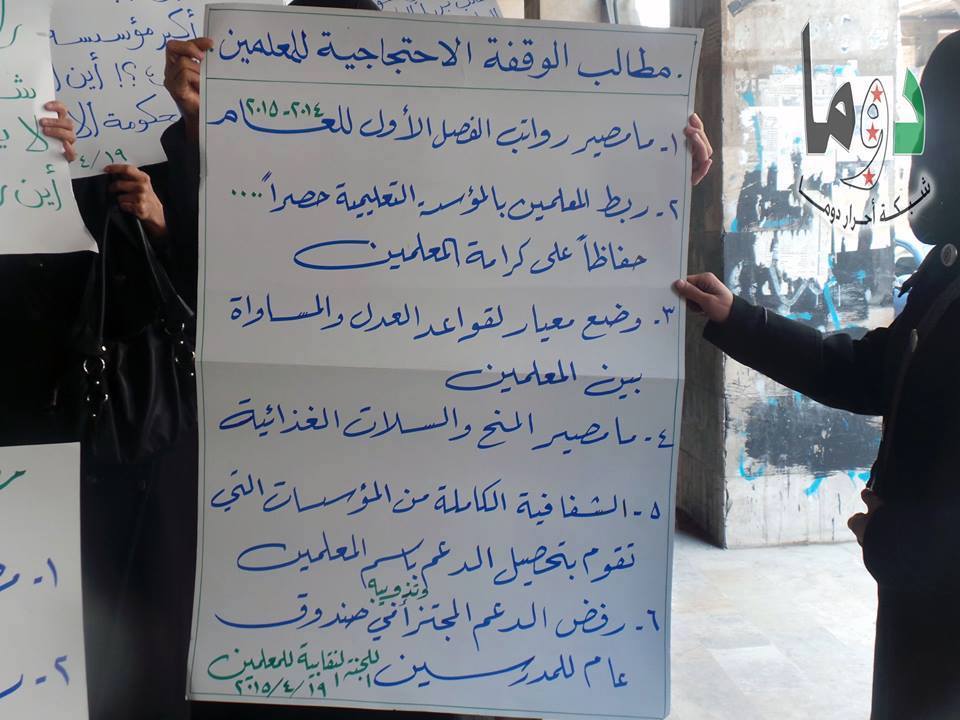 مطالب الوقفة الاحتجاجية للمعلمين.
١- ما مصير رواتب الفصل الأول للعام ٢٠١٤-٢٠١٥
٢- ربط المعلمين بالمؤسسة التعليمية حصراً....
حفاظاً على كرامة المعلمين
٣- وضع معيار لقواعد العدل والمساواة
بين المعلمين
٤- ما مصير المنح والسلات الغذائية
٥- الشفافية الكاملة من المؤسسات التي
تقوم بتحصيل الدعم باسم المعلمين
٦- رفض الدعم المجتزأ وتذويبه في صندوق
عام للمدرسين
اللجنة النقابية للمعلمين
٢٠١٥/٤/١٩
أكبر مؤسسة
؟! أين
حكومة
٤/١٩
أين
١-
٢-
دوما
شبكة أحرار دوما